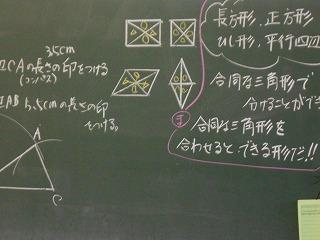 3.5cm
CAの長さの印をつける
(コンパス)
AB 6.5cmの長さの印
をつける。
A
C
長方形、正方形
ひし形、平行四辺
合同な三角形で
分けることがで
ま
合同な三角形を
合わせるとできる形だ!!